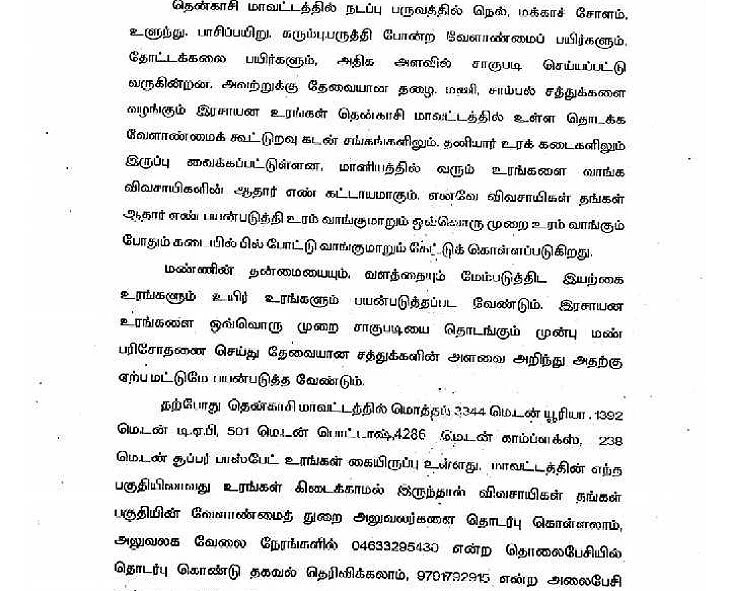 தென்காசி மாவட்டத்தில் நடப்பு பருவத்தில் நெல், மக்காச் சோளம்,
உளுந்து, பாசிப்பயிறு, கரும்பு,பருத்தி போன்ற வேளாண்மைப் பயிர்களும்,
தோட்டக்கலை பயிர்களும், அதிக அளவில் சாகுபடி செய்யப்பட்டு
வருகின்றன. அவற்றுக்கு தேவையான தழை, மணி, சாம்பல் சத்துக்களை
வழங்கும் இரசாயன உரங்கள் தென்காசி மாவட்டத்தில் உள்ள தொடக்க
வேளாண்மைக் கூட்டுறவு கடன் சங்கங்களிலும், தனியார் உரக் கடைகளிலும்
இருப்பு வைக்கப்பட்டுள்ளன. மானியத்தில் வரும் உரங்களை வாங்க
விவசாயிகளின் ஆதார் எண் கட்டாயமாகும். எனவே விவசாயிகள் தங்கள்
ஆதார் எண் பயன்படுத்தி உரம் வாங்குமாறும் ஒவ்வொரு முறை உரம் வாங்கும்
போதும் கடையில் பில் போட்டு வாங்குமாறும் கேட்டுக் கொள்ளப்படுகிறது.
மண்ணின் தன்மையையும், வளத்தையும் மேம்படுத்திட இயற்கை
உரங்களும் உயிர் உரங்களும் பயன்படுத்தப்பட வேண்டும். இரசாயன
உரங்களை ஒவ்வொரு முறை சாகுபடியை தொடங்கும் முன்பு மண்
பரிசோதனை செய்து தேவையான சத்துக்களின் அளவை அறிந்து அதற்கு
ஏற்ப மட்டுமே பயன்படுத்த வேண்டும்.
தற்போது தென்காசி மாவட்டத்தில் மொத்தம் 3344 மெ.டன் யூரியா , 1392
மெ.டன் டி.ஏ.பி, 501 மெ.டன் பொட்டாஷ்,4286 மெ.டன் காம்ப்ளக்ஸ், 238
மெ.டன் சூப்பர் பாஸ்பேட் உரங்கள் கையிருப்பு உள்ளது. மாவட்டத்தின் எந்த
பகுதியிலாவது உரங்கள் கிடைக்காமல் இருந்தால் விவசாயிகள் தங்கள்
பகுதியின் வேளாண்மைத் துறை அலுவலர்களை தொடர்பு கொள்ளலாம்,
அலுவலக வேலை நேரங்களில் 04633295430 என்ற தொலைபேசியில்
தொடர்பு கொண்டு தகவல் தெரிவிக்கலாம், 9701792915 என்ற அலைபேசி